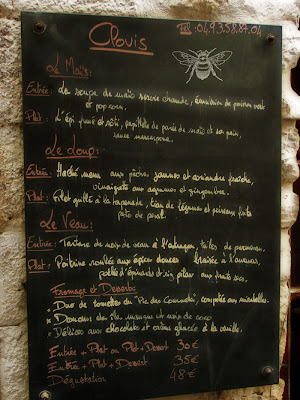 Clovis
Tel: 04.93.58.87.04
Le Maïs:
Entrée: La soupe de maïs servie chaude, émulsion de poivron vert
et pop corn.
Plat: L'épi fumé et rôti, papillote de purée de maïs et son pain,
sauce mascarpone.
Le Loup:
Entrée: Haché menu aux pêches jaunes et coriandre fraîche,
vinaigrette aux agrumes et gingembre.
Plat: Filet grillé à la tapenade, tian de légumes et poireaux
pate de persil.
Le Veau:
Entrée: Tartare de noix de veau à l'estragon, tuiles de parmesan.
Plat: Poitrine roulée aux épices douces
aux fruits secs.
Fromage et Desserts:
* Duo de tomettes du "Pic des Courmettes", compotée aux mirabelles.
* Douceur des îles, mangue et noix de coco
* Délices aux chocolats et crème glacée à la vanille.
Entrée + Plat ou Plat + Dessert 30€
Entrée + Plat + Dessert 35€
Dégustation 48€